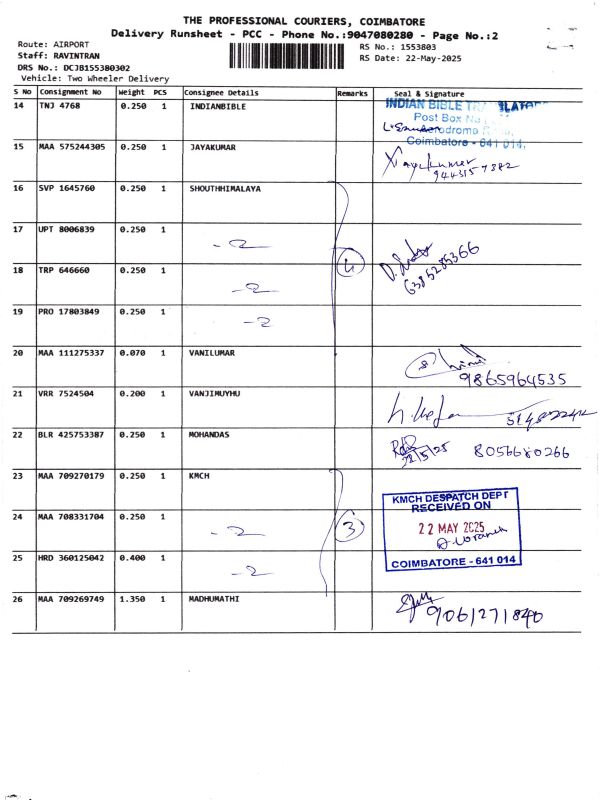 THE PROFESSIONAL COURIERS, COIMBATORE
Delivery Runsheet - PCC - Phone No.:9047080280 - Page No.:2
Route: AIRPORT
RS No.: 1553803
Staff: RAVINTRAN
RS Date: 22-May-2025
DRS No.: DCJB155380302
Vehicle: Two Wheeler Delivery
S No Consignment No Weight PCS Consignee Details Remarks Seal & Signature
14 TNJ 4768 0.250 1 INDIANBIBLE
INDIAN BIBLE
Post Box No
Coimbatore - 641 014.
15 MAA 575244305 0.250 1 JAYAKUMAR
Jayakumar
16 SVP 1645760 0.250 1 SHOUTHHIMALAYA
17 UPT 8006839 0.250 1
- 2
4
6385285366
18 TRP 646660 0.250 1
- 2
19 PRO 17803849 0.250 1
- 2
20 MAA 111275337 0.070 1 VANILUMAR
9865964535
21 VRR 7524504 0.200 1 VANJIMUYHU
22 BLR 425753387 0.250 1 MOHANDAS
22/5/25 8056680266
23 MAA 709270179 0.250 1 KMCH
KMCH DESPATCH DEPT
RECEIVED ON
24 MAA 708331704 0.250 1
- 2
3
22 MAY 2025
25 HRD 360125042 0.400 1
- 2
COIMBATORE - 641 014
26 MAA 709269749 1.350 1 MADHUMATHI
9061271840